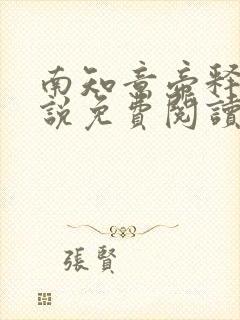 南知意帝释
說免費閱讀
張賢